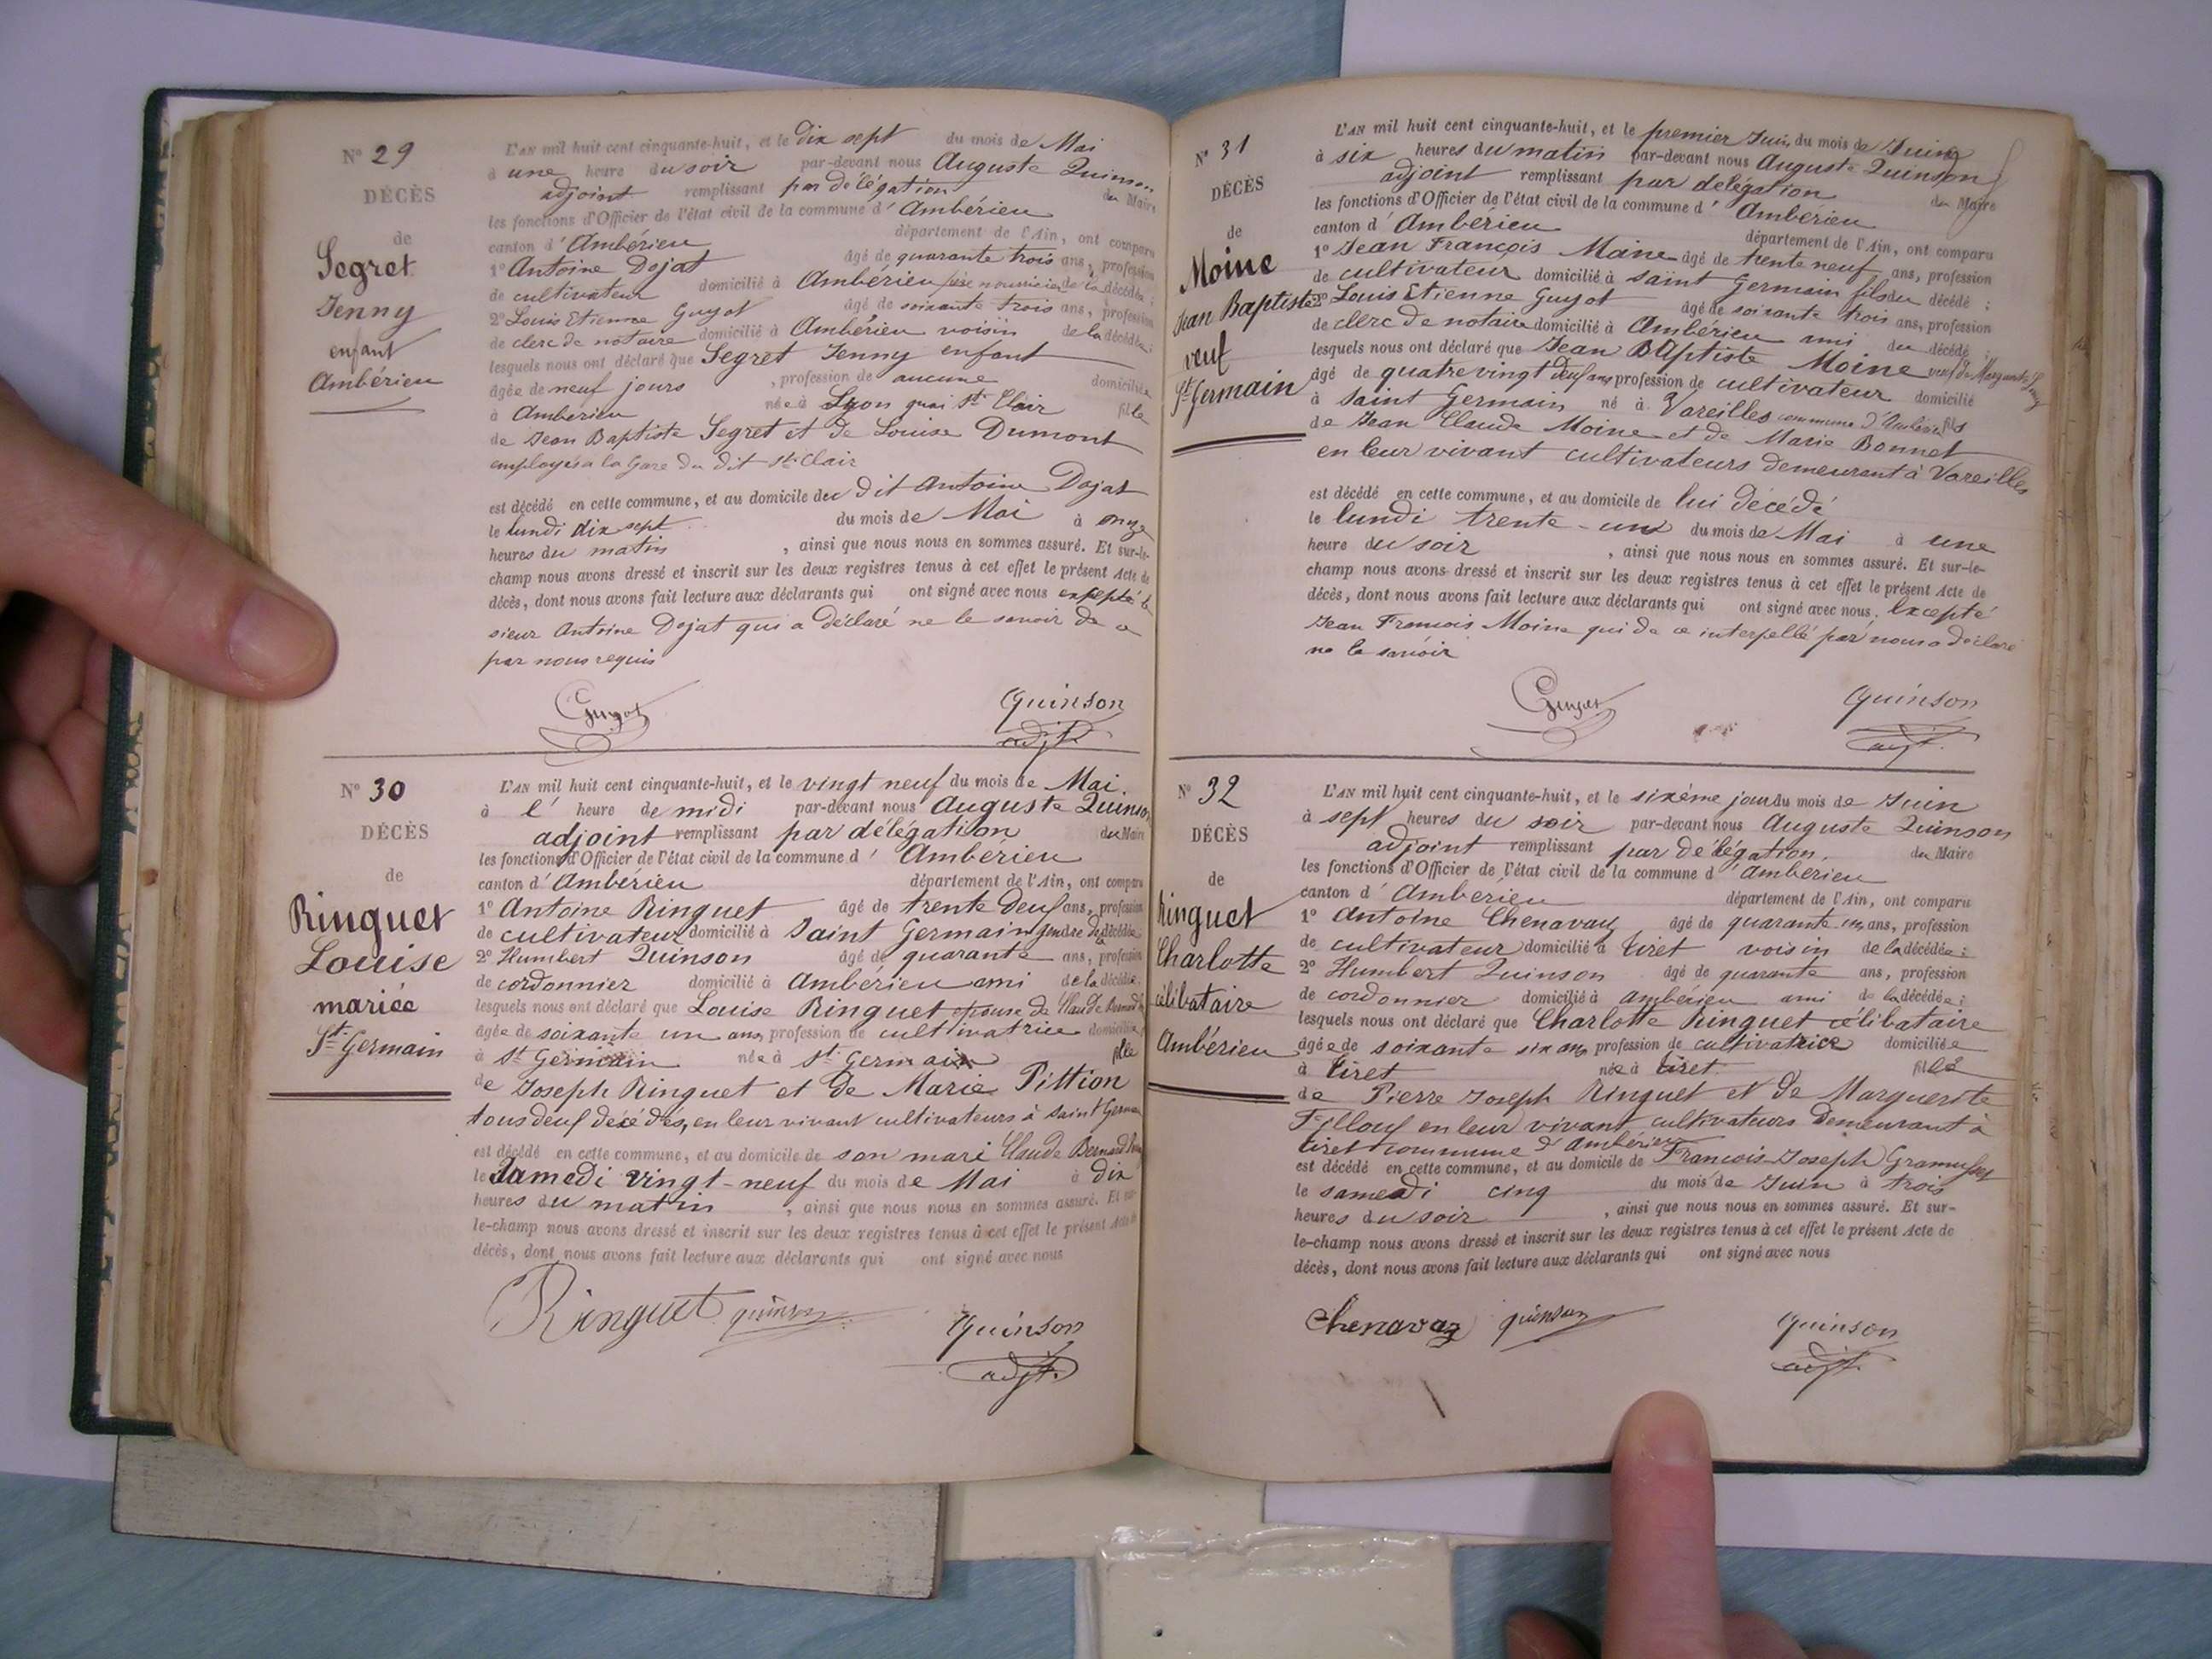 N° 29
DÉCÈS
de
Segret
Jenny
enfant
Ambérieu
L'AN mil huit cent cinquante-huit, et le dix sept du mois de Mai
à une heure du soir par-devant nous Auguste Quinson
adjoint remplissant par délégation du Maire
les fonctions d'Officier de l'état civil de la commune d' Ambérieu
canton d' Ambérieu département de l'Ain, ont comparu
1° Antoine Dojat âgé de quarante trois ans, profession
de cultivateur domicilié à Ambérieu père nourricier de la décédée ;
2° Louis Etienne Guyot âgé de soixante trois ans, profession
de clerc de notaire domicilié à Ambérieu voisin de la décédée ;
lesquels nous ont déclaré que Segret Jenny enfant
âgée de neuf jours , profession de aucune domiciliée
à Ambérieu née à Lyon quai St Clair fille
de Jean Baptiste Segret et de Louise Dumont
employés a la Gare du dit St Clair
est décédé en cette commune, et au domicile de du dit Antoine Dojat
le lundi dix sept du mois de Mai à onze
heures du matin , ainsi que nous nous en sommes assuré. Et sur-le-
champ nous avons dressé et inscrit sur les deux registres tenus à cet effet le présent Acte de
décès, dont nous avons fait lecture aux déclarants qui ont signé avec nous expepté le
sieur Antoine Dojat qui a déclaré ne le savoir de ce
par nous requis
Guyot Quinson
adjt
N° 30
DÉCÈS
de
Ringuet
Louise
mariée
St Germain
L'AN mil huit cent cinquante-huit, et le vingt neuf du mois de Mai.
à l' heure de midi par-devant nous Auguste Quinson
adjoint remplissant par délégation du Maire
les fonctions d'Officier de l'état civil de la commune d' Ambérieu
canton d' Ambérieu département de l'Ain, ont comparu
1° Antoine Ringuet âgé de trente deux ans, profession
de cultivateur domicilié à Saint Germain gendre de la décédée
2° Humbert Quinson âgé de quarante ans, profession
de cordonnier domicilié à Ambérieu ami de la décédée
lesquels nous ont déclaré que Louise Ringuet epouse de Claude Bernard
âgée de soixante un ans, profession de cultivatrice domiciliée
à St Germain née à St Germain fille
de Joseph Ringuet et de Marie Pittion
tous deux décédés, en leur vivant cultivateurs à Saint Germain
est décédé en cette commune, et au domicile de son mari Claude Bernard
le Samedi vingt-neuf du mois de Mai à dix
heures du matin , ainsi que nous nous en sommes assuré. Et sur-
le-champ nous avons dressé et inscrit sur les deux registres tenus à cet effet le présent Acte de
décès, dont nous avons fait lecture aux déclarants qui ont signé avec nous
Ringuet quinson Quinson
adjt.
N° 31
DÉCÈS
de
Moine
Jean Baptiste
veuf
St Germain
L'AN mil huit cent cinquante-huit, et le premier Juin du mois de Juin
à six heures du matin par-devant nous Auguste Quinson
adjoint remplissant par delégation du Maire
les fonctions d'Officier de l'état civil de la commune d' Ambérieu
canton d' Ambérieu département de l'Ain, ont comparu
1° Jean François Moine âgé de trente neuf ans, profession
de cultivateur domicilié à saint Germain fils du décédé ;
2° Louis Etienne Guyot âgé de soixante trois ans, profession
de clerc de notaire domicilié à Ambérieu ami du décédé ;
lesquels nous ont déclaré que Jean Baptiste Moine veuf de Marguerite
âgé de quatre vingt deux ans profession de cultivateur domicilié
à Saint Germain né à Vareilles commune d'Ambérieu fils
de Jean Claude Moine et de Marie Bonnet
en leur vivant cultivateurs demeurant à Vareilles
est décédé en cette commune, et au domicile de lui décédé
le lundi trente-un du mois de Mai à une
heure du soir , ainsi que nous nous en sommes assuré. Et sur-le-
champ nous avons dressé et inscrit sur les deux registres tenus à cet effet le présent Acte de
décès, dont nous avons fait lecture aux déclarants qui ont signé avec nous, Excepté
Jean François Moine qui de ce interpellé par nous a déclaré
ne le savoir
Guyot Quinson
adjt.
N° 32
DÉCÈS
de
Ringuet
Charlotte
célibataire
Ambérieu
L'AN mil huit cent cinquante-huit, et le sixéme jour du mois de Juin
à sept heures du soir par-devant nous Auguste Quinson
adjoint remplissant par délégation. du Maire
les fonctions d'Officier de l'état civil de la commune d' Ambérieu
canton d' Ambérieu département de l'Ain, ont comparu
1° Antoine Chenavaz âgé de quarante un ans, profession
de cultivateur domicilié à Tiret voisin de la décédée ;
2° Humbert Quinson âgé de quarante ans, profession
de cordonnier domicilié à Ambérieu ami de la décédée ;
lesquels nous ont déclaré que Charlotte Ringuet célibataire
âgée de soixante six ans profession de cultivatrice domiciliée
à Tiret née à Tiret fille
de Pierre Joseph Ringuet et de Marguerite
Filloux en leur vivant cultivateurs demeurant à
Tiret commune d'Ambérieu
est décédé en cette commune, et au domicile de François-Joseph
le samedi cinq du mois de Juin à trois
heures du soir , ainsi que nous nous en sommes assuré. Et sur-
le-champ nous avons dressé et inscrit sur les deux registres tenus à cet effet le présent Acte de
décès, dont nous avons fait lecture aux déclarants qui ont signé avec nous
Chenavaz quinson Quinson
adjt.